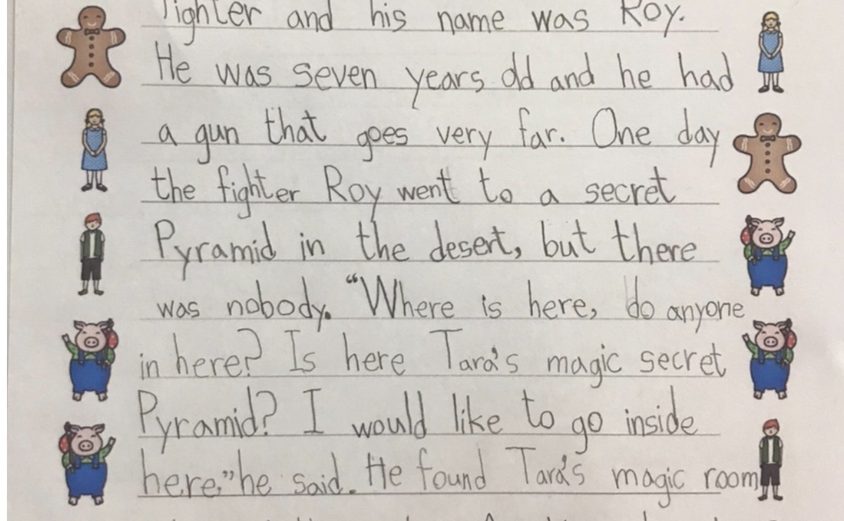 fighter and his name was Roy.
He was seven years old and he had
a gun that goes very far. One day
the fighter Roy went to a secret
Pyramid in the desert, but there
was nobody. "Where is here, do anyone
in here? Is here Tara's magic secret
Pyramid? I would like to go inside
here," he said. He found Tara's magic room